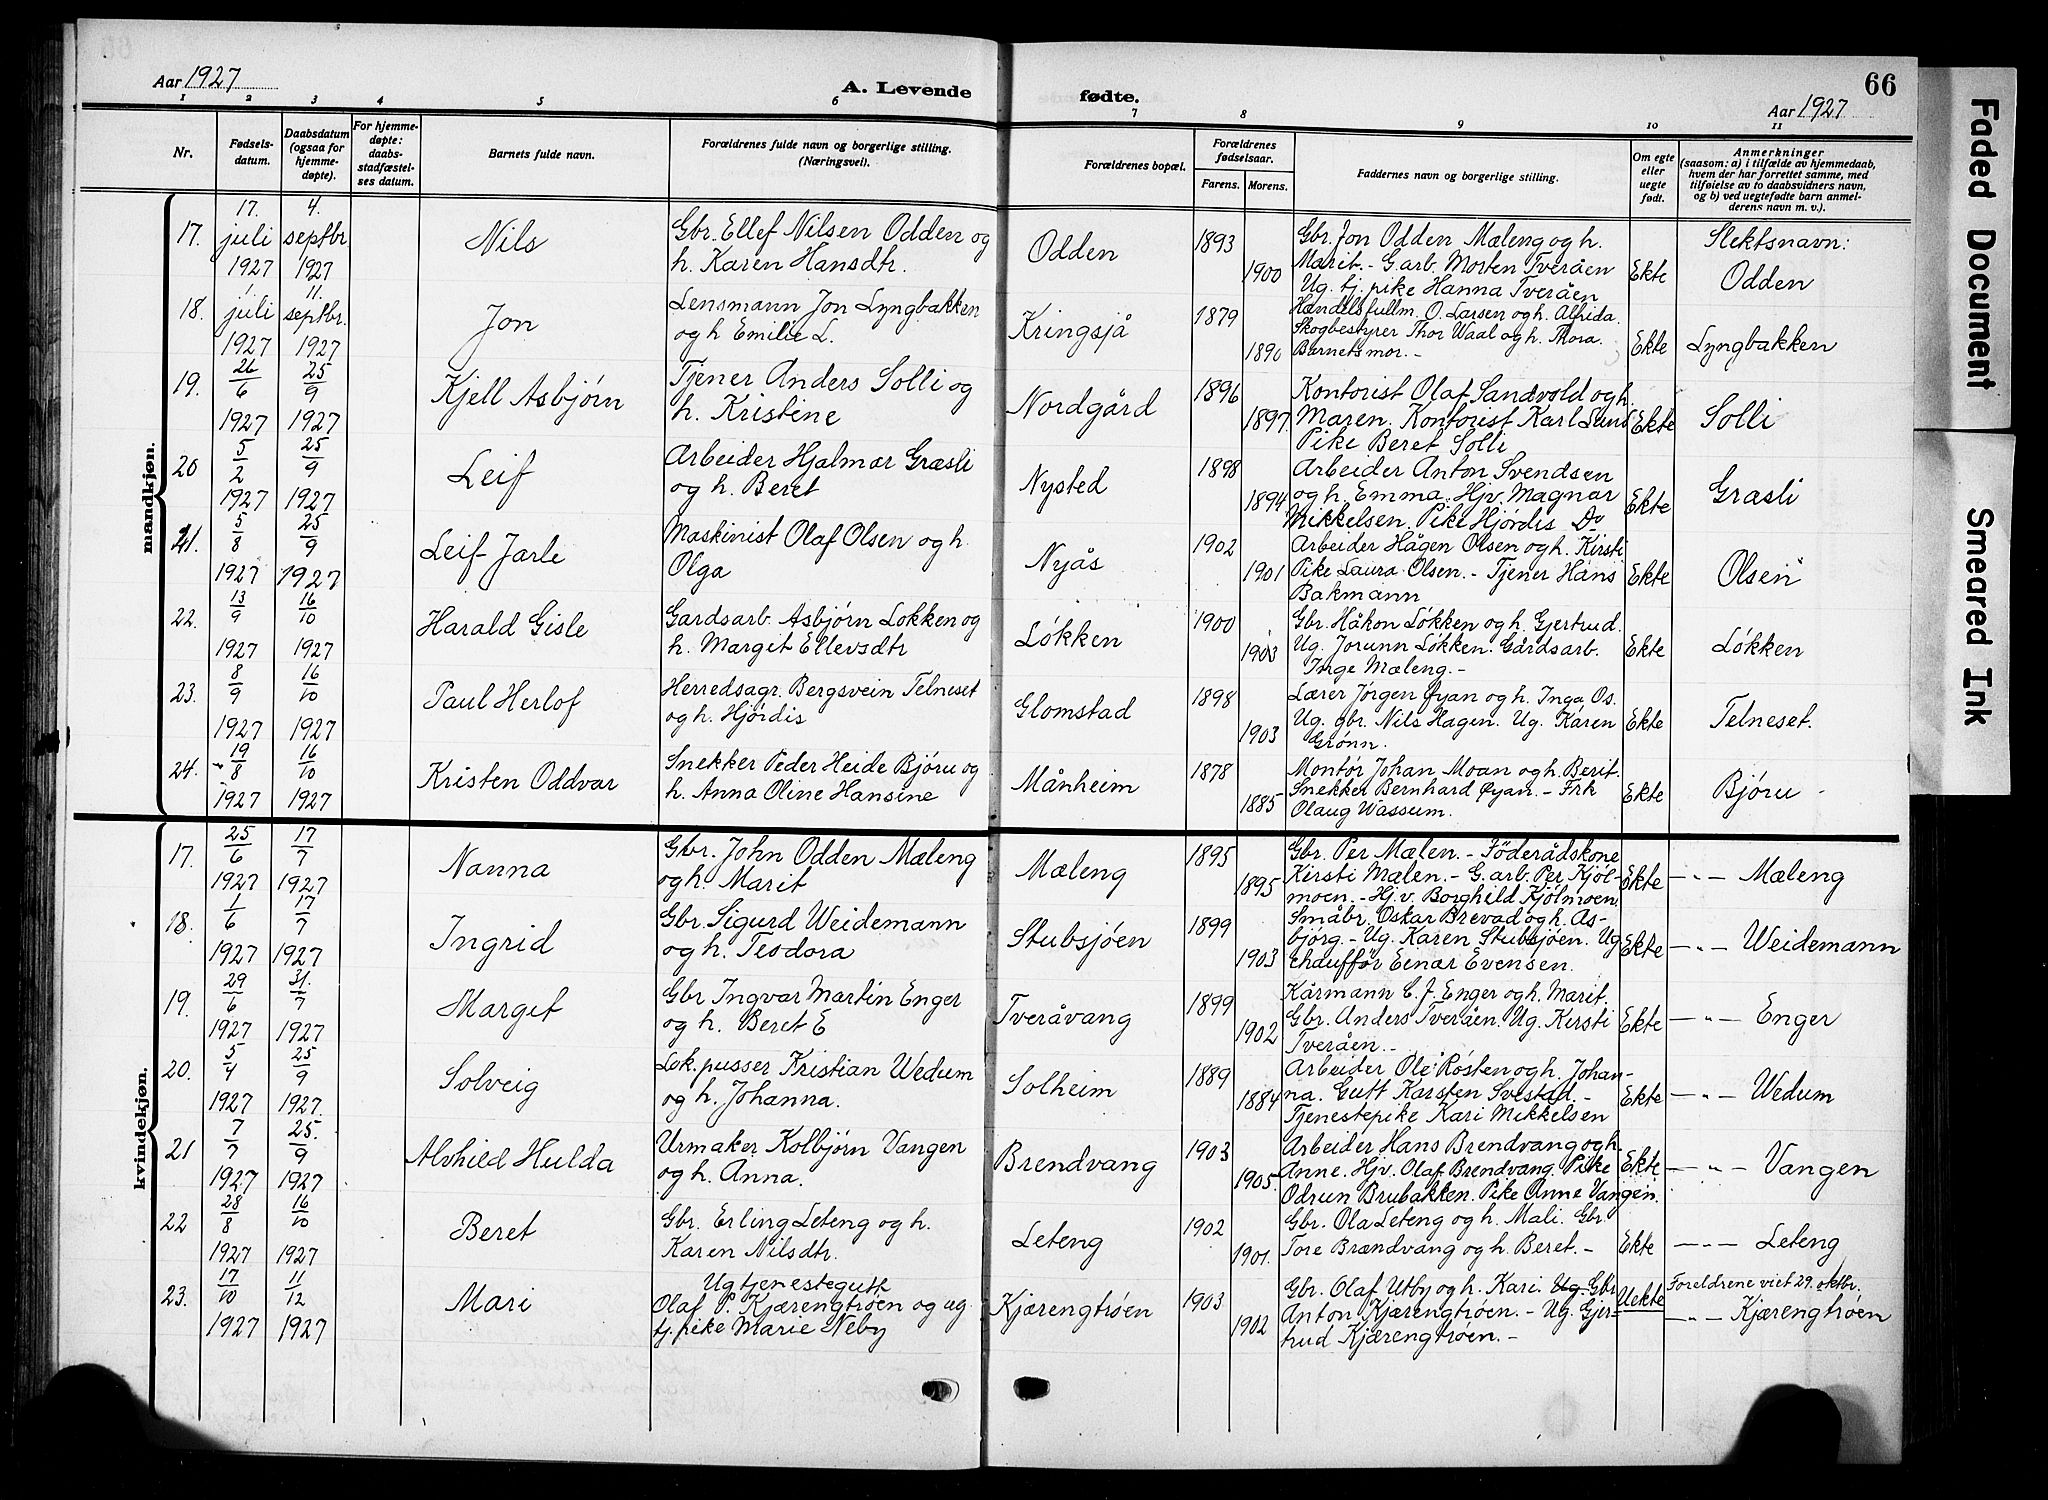 66
Aar 1927
A. Levende fødte.
Aar 1927
1 2 3 4 5 6 7 8 9 10 11
Nr.
Fødsels-
datum.
Daabsdatum
(ogsaa for
hjemme-
døpte).
For hjemme-
døpte:
daabs-
stadfæstel-
ses datum.
Barnets fulde navn.
Forældrenes fulde navn og borgerlige stilling.
(Næringsvei).
Forældrenes bopæl.
Forældrenes
fødselsaar.
Farens. Morens.
Faddernes navn og borgerlige stilling.
Om egte
eller
uegte
født.
Anmerkninger
(saasom: a) i tilfælde av hjemmedaab,
hvem der har forrettet samme, med
tilføielse av to daabsvidners navn,
og b) ved uegtefødte barn anmel-
derens navn m. v.).
mandkjøn.
17.
17.
juli
1927
4.
septbr
1927
Nils
Gbr. Ellef Nilsen Odden og
h. Karen Hansdtr.
Odden
1893
1900
Gbr. Jon Odden Mæleng og h.
Marit. - G.arb. Morten Tveråen
Ug. tj. pike Hanna Tveråen
Ekte
Slektsnavn:
Odden
18.
1
juli
1927
11.
septbr.
1927
Jon
Lensmann Jon Lyngbakken
og h Emilie L.
Kringsjå
1879
1890
Handelsfullm. O. Larsen og h. Alfida.
Skogbestyrer Thor Waal og h. Thora.
Barnets mor. -
Ekte
Lyngbakken
19.
26/6
1927
25/9
1927
Kjell Asbjörn
Tjener Anders Solli og
h. Kristine
Nordgård
1896
1897
Kontorist Olaf Sandvold og h.
Maren. Kontorist Karl Lund
Pike Beret Solli
Ekte
Solli
20
5/2
1927
25/9
1927
Leif
Arbeider Hjalmar Græsli
og h. Beret
Nysted
1898
1894
Arbeider Anton Svendsen
og h. Emma. Hjv. Magnar
Mikkelsen. Pike Hjördis Do
Ekte
Græsli
21.
5/8
1927
25/9
1927
Leif Jarle
Maskinist Olaf Olsen og h.
Olga
Nyås
1902
1901
Arbeider Hågen Olsen og h. Kirsti
Pike Laura Olsen. - Tjener Hans
Bakmann
Ekte
Olsen
22.
13/9
1927
16/10
1927
Harald Gisle
Gardsarb. Asbjörn Lökken og
h. Margit Ellevsdtr
Lökken
1900
1903
Gbr. Håkon Lökken og h. Gjertrud.
Ug. Jorunn Lökken. Gårdsarb.
Inge Mæleng. -
Ekte
Lökken
23.
8/9
1927
16/10
1927
Paul Herlof
Herredsagr. Bergsvein Telneset
og h. Hjördis
Glomstad
1898
1903
Lærer Jörgen Øyan og h. Inga Os.
Ug. gbr. Nils Hagen. Ug. Karen
Grönn.
Ekte
Telneset.
24.
19/8
1927
16/10
1927
Kristen Oddvar
Snekker Peder Heide Björu og
h. Anna Oline Hansine
Månheim
1878
1885
Montör Johan Moan og h. Berit.
Snekker Bernhard Øyan. - Frk
Olaug Wassum.
Ekte
Björu -
kvindekjøn.
17.
25/6
1927
17/7
1927
Nanna
Gbr. John Odden Mæleng
og h. Marit
Mæleng
1895
1895
Gbr. Per Mælen. - Föderådskone
Kirsti Mælen. - G. arb. Per Kjöl-
moen. - Hj. v. Borghild Kjölmoen
Ekte
-"- Mæleng
18.
1/6
1927
17/7
1927
Ingrid
Gbr. Sigurd Weidemann
og h. Teodora
Stubsjöen
1899
1903
Småbr. Oskar Brevad og h. As-
björg. - Ug. Karen Stubsjöen. Ug
chauffør Einar Evensen.
Ekte
-"- Weidemann
19.
29/6
1927
31./7
1927
Margit
Gbr Ingvar Martin Enger
og h. Beret E
Tveråvang
1899
1902
Kårmann C. J. Enger og h. Marit.
Gbr. Anders Tveråen. Ug. Kirsti
Tveråen. -
Ekte
-"- Enger
20.
5/4
1927
25/9
1927.
Solveig
Lok. pusser Kristian Wedum
og h. Johanna.
Solheim
1889
1884
Arbeider Ole Rösten og h. Johan-
na. Gutt Karsten Svestad. -
Tjenestepike Kari Mikkelsen
Ekte
-"- Wedum
21
7/7
1927
25./9
1927
Alvhild Hulda
Urmaker Kolbjörn Vangen
og h. Anna.
Brendvang
1903
1905.
Arbeider Hans Brendvang og h.
Anne. Hjv. Olaf Brendvang. Pike
Odrun Brubakken. Pike Anne Vangen.
Ekte
-"- Vangen
22
28/8
1927
16/10
1927
Beret
Gbr. Erling Leteng og h.
Karen Nilsdtr.
Leteng
1902
1901.
Gbr. Ola Leteng og h. Mali. Gbr.
Tore Brændvang og h. Beret. -
Ekte
-"- Leteng
23.
17/10
1927
11/12
1927
Mari
Ug tjenestegutt
Olaf P. Kjærengtröen og ug.
tj. pike Marie Neby
Kjærengtröen
1903
1902
Gbr. Olaf Utby og h. Kari. Ug. Gbr
Anton Kjærengtröen. - Ug. Gjer-
trud Kjærengtröen. -
Uekte
Foreldrene viet 29. oktbr.
-"- Kjærengtröen
Faded Document
Smeared Ink